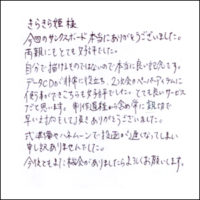 きらきら姫 様
今回のサンクスボード本当にありがとうございました。
両親にもとても好評でした。
自分で描けるものではないので本当に良い記念です。
データCDが非常に役立ち、2次会のペーパーアイテムに
使う事ができこちらも好評でした。とても良いサービス
だと思います。制作過程から含め常に親切で
早い対応をして頂きありがとうございました。
式準備やハネムーンで投函が遅くなってしまい
申し訳ありませんでした。
今後ともまた機会がありましたらよろしくお願いします。